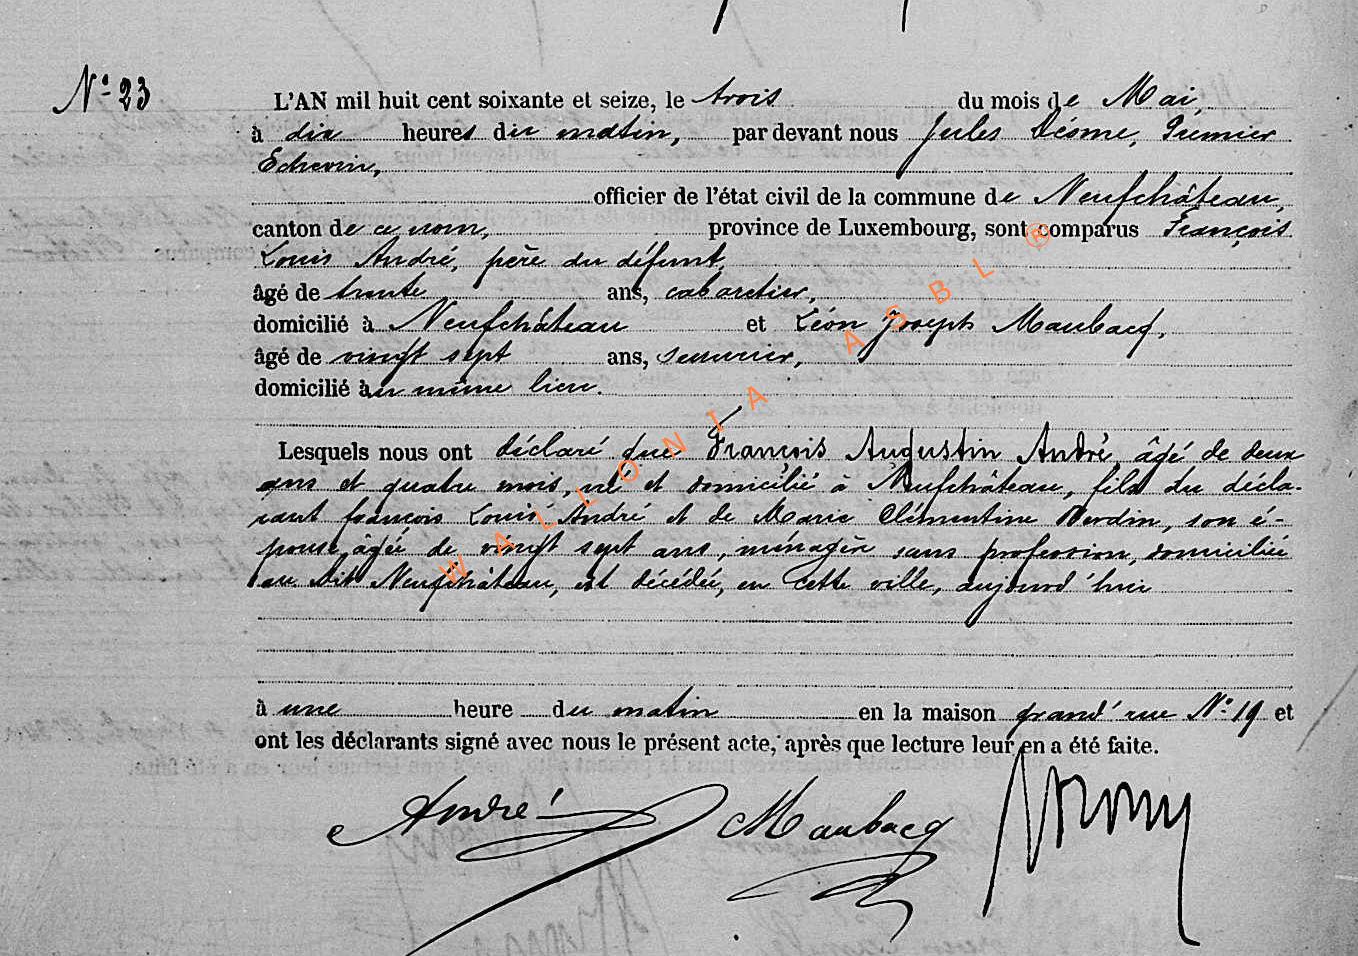 N° 23
L'AN mil huit cent soixante et seize, le trois du mois de Mai,
à dix heures du matin, par devant nous Jules Désome, Premier
Echevin,
officier de l'état civil de la commune de Neufchâteau,
canton de ce nom, province de Luxembourg, sont comparus François
Louis André, père du défunt,
âgé de trente ans, cabaretier,
domicilié à Neufchâteau et Léon Joseph Maubacq,
âgé de vingt sept ans, serrurier,
domicilié au même lieu.
Lesquels nous ont déclaré que François Augustin André âgé de deux
ans et quatre mois, né et domicilié à Neufchâteau, fils du décla-
rant françois Louis André et de Marie Clémentine Dardin, son é-
pouse, âgée de vingt sept ans, ménagère sans profession, domiciliée
au dit Neufchâteau, est décédé, en cette ville, aujourd'hui
à une heure du matin en la maison grand'rue N° 19 et
ont les déclarants signé avec nous le présent acte, après que lecture leur en a été faite.
André Maubacq
WALLONIA ASBL ®